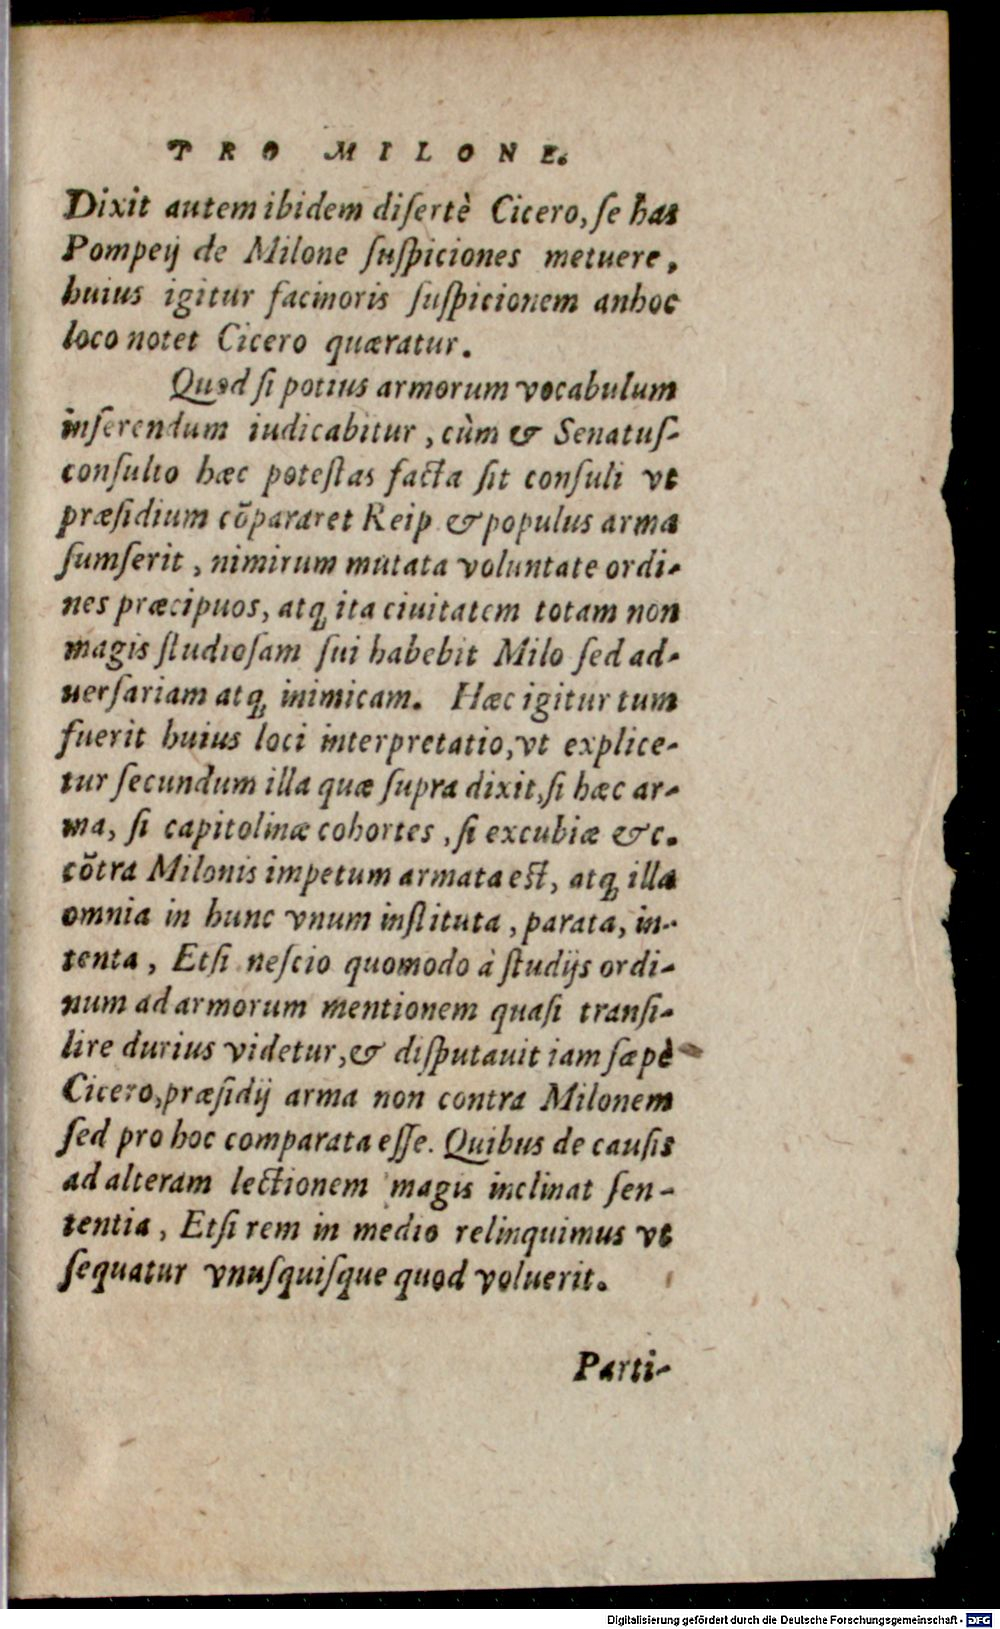 PRO MILONE.
Dixit autem ibidem disertè Cicero, se has
Pompeij de Milone suspiciones metuere,
huius igitur facinoris suspicionem anhoc
loco notet Cicero quæratur.
Quod si potius armorum vocabulum
inserendum iudicabitur, cùm & Senatus-
consulto hæc potestas facta sit consuli vt
præsidium cōpararet Reip & populus arma
sumserit, nimirum mutata voluntate ordi-
nes præcipuos, atq́ ita ciuitatem totam non
magis studiosam sui habebit Milo sed ad-
uersariam atq́ inimicam. Hæc igitur tum
fuerit huius loci interpretatio, vt explice-
tur secundum illa quæ supra dixit, si hæc ar-
ma, si capitolinæ cohortes, si excubiæ &c.
cōtra Milonis impetum armata est, atq́ illa
omnia in hunc vnum instituta, parata, in-
tenta, Etsi nescio quomodo à studijs ordi-
num ad armorum mentionem quasi transi-
lire durius videtur, & disputauit iam sæpè
Cicero, præsidij arma non contra Milonem
sed pro hoc comparata esse. Quibus de causis
ad alteram lectionem magis inclinat sen-
tentia, Etsi rem in medio relinquimus vt
sequatur vnusquisque quod voluerit.
Parti-
Digitalisierung gefördert durch die Deutsche Forschungsgemeinschaft - DFG